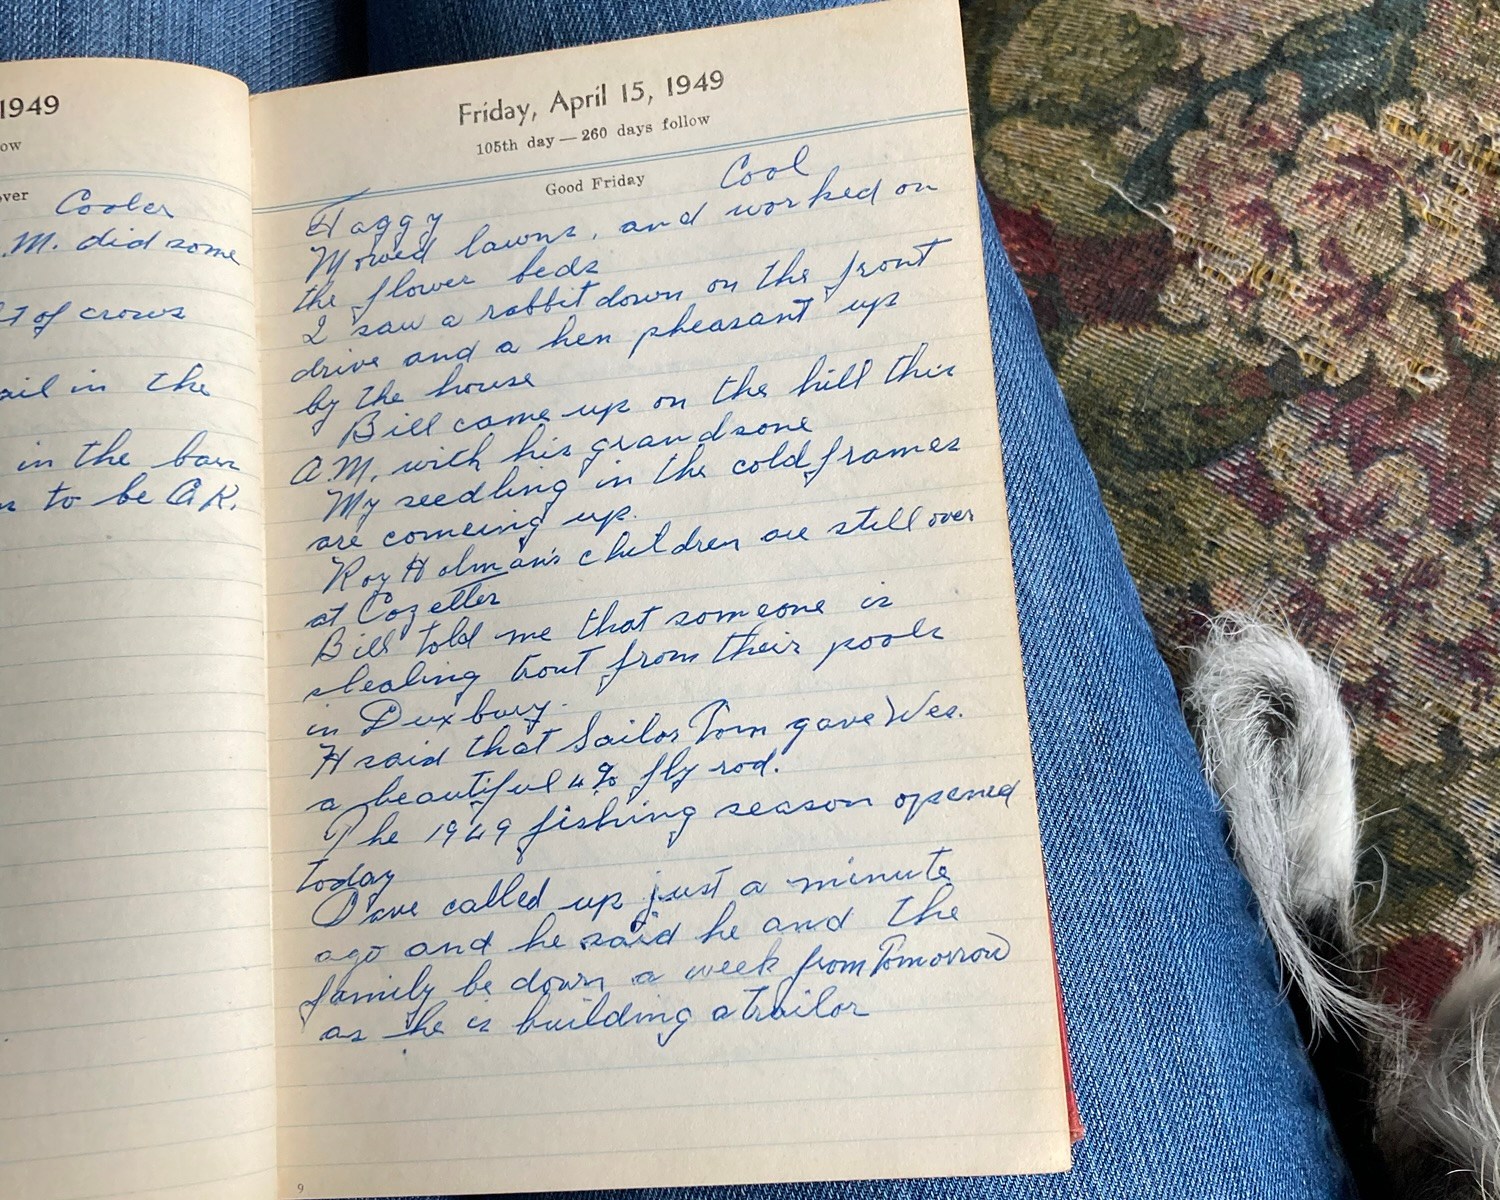 1949
ow
over Cooler
.M. did some
t of crows
ail in the
in the barn
to be O.K.
Friday, April 15, 1949
105th day — 260 days follow
Good Friday Cool
Haggy
Mowed lawns, and worked on
the flower beds
I saw a rabbit down on the front
drive and a hen pheasant up
by the house
Bill came up on the hill this
A.M. with his grandsone
My seedling in the cold frames
are comeing up.
Roy Holman's children are still over
at Cozettes
Bill told me that someone is
stealing trout from their pools
in Duxbury.
H said that Sailor Tom gave Wes.
a beautiful fly rod.
The 1949 fishing season opened
today
Dave called up just a minute
ago and he said he and the
family be down a week from Tomorrow
as he is building a trailor
9